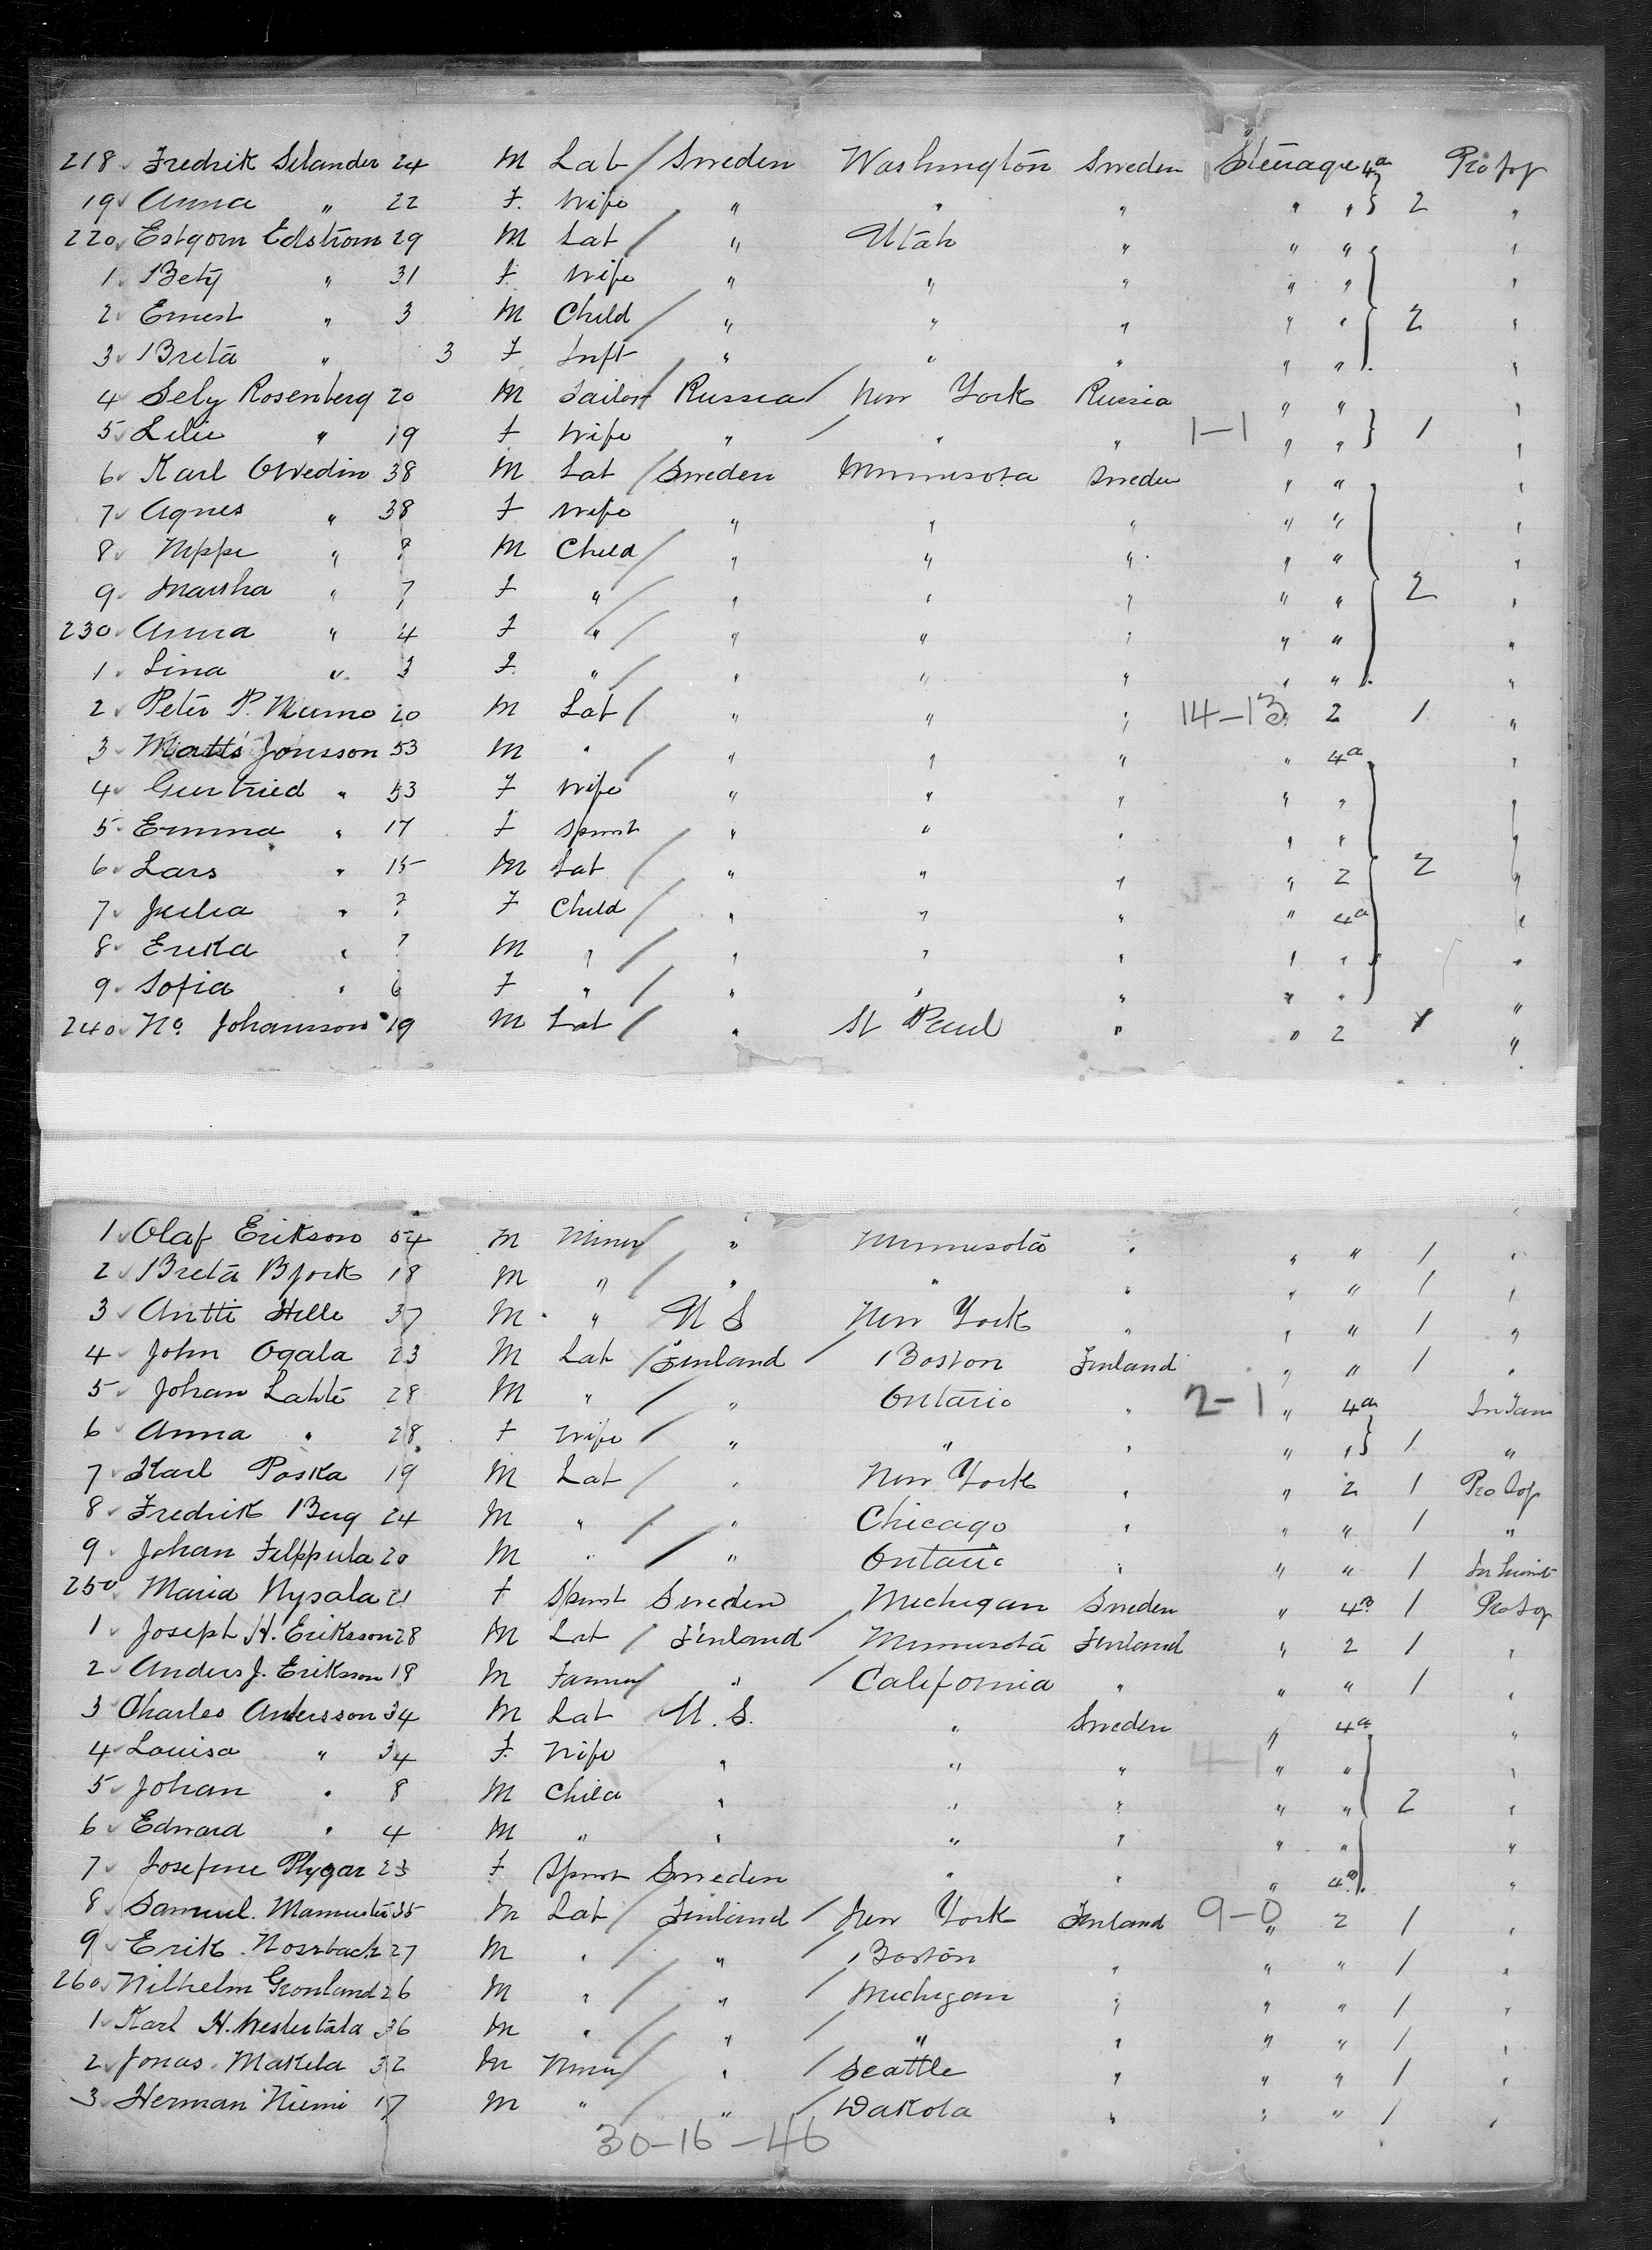 218 Fredrik Selander 24 M Lab / Sweden Washington Sweden Steerage 4a Pro Sop
19 Anna " 22 F. Wife " " " " " } 2 "
220 Estgom Edstrom 29 M Lab / " Utah " " " "
1 Bety " 31 F. Wife " " " " " "
2 Ernest " 3 M Child / " " " " " } 2 "
3 Breta " 3 F Inft " " " " " "
4 Sely Rosenberg 20 M Tailor / Russia / New York Russia " " "
5 Lilie " 19 F Wife " / " " 1-1 " " } 1 "
6 Karl Owedin 38 M Lab / Sweden Minnesota Sweden " " "
7 Agnes " 38 F Wife " " " " " "
8 " M Child / " " " " " "
9 Martha " 7 F " / " " " " " } 2 "
230 Anna " 4 F " / " " " " " "
1 Lina " 3 F. " / " " " " " "
2 Peter P. 20 M Lab / " " " 14-13 " 2 1 "
3 Matts Jonsson 53 M " / " " " " 4a "
4 " 53 F Wife " " " " " "
5 Emma " 17 F Spinst / " " " " " "
6 Lars " 15 M Lab / " " " " 2 } 2 "
7 Julia " F Child / " " " " 4a "
8 Erika " M " / " " " " " "
9 Sofia " 6 F " / " " " " " "
240 No. Johansson 19 M Lab / " St Paul " " 2 1 "
1 Olaf Erikson 54 M Miner / " Minnesota " " " 1 "
2 Breta Bjork 18 M " / " " " " " 1 "
3 Antti Helle 37 M " U S New York " " " 1 "
4 John Ogala 23 M Lab / Finland / Boston Finland " " 1 "
5 Johan Lahti 28 M " / " Ontario " 2-1 " 4a In Tran
6 Anna " 28 F Wife / " " " " " } 1 "
7 Karl Poska 19 M Lab / " New York " " 2 1 Pro Sop
8 Fredrik Berg 24 M " / " Chicago " " " 1 "
9 Johan Filppula 20 M " / " Ontario " " " 1 In Transit
250 Maria Nysala 21 F Spinst Sweden Michigan Sweden " 4B 1 Pro Sop
1 Joseph H. Eriksson 28 M Lab / Finland / Minnesota Finland " 2 1 "
2 Anders J. Eriksson 18 M Farmer / " / California " " " 1 "
3 Charles Andersson 34 M Lab U.S. " Sweden " 4a "
4 Louisa " 34 F. Wife " " " 4-1 " " "
5 Johan " 8 M Child " " " " " } 2 "
6 Edward " 4 M " " " " " " "
7 Josefine Plygar 23 F Spinst Sweden " " " 4B "
8 Samuel 35 M Lab / Finland / New York Finland 9-0 " 2 1 "
9 Erik Norrback 27 M " / " / Boston " " " 1 "
260 Wilhelm Gronland 26 M " / " / Michigan " " " 1 "
1 Karl H. Westertala 36 M " / " / " " " " 1 "
2 Jonas Makela 32 M Miner / " / Seattle " " " 1 "
3 Herman Niemi 17 M " / " / Dakota " " " 1 "
30-16-46